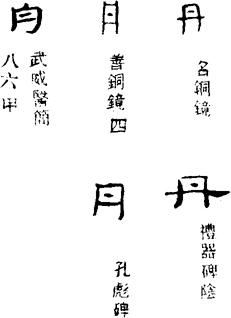 丹
名銅鏡
丹
善銅鏡四
丹
武威醫簡
八六甲
丹
禮器碑陰
丹
孔彪碑